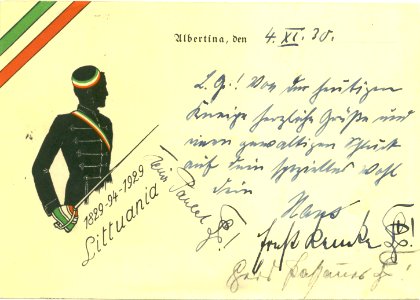 Albertina, den 4. XI. 30.
L. G.! Von der heutigen
Kneipe herzliche Grüße und
einen gewaltigen Schluck
auf Dein spezielles Wohl
Dein
Hans
Ernst
1829-94-1929
Littuania